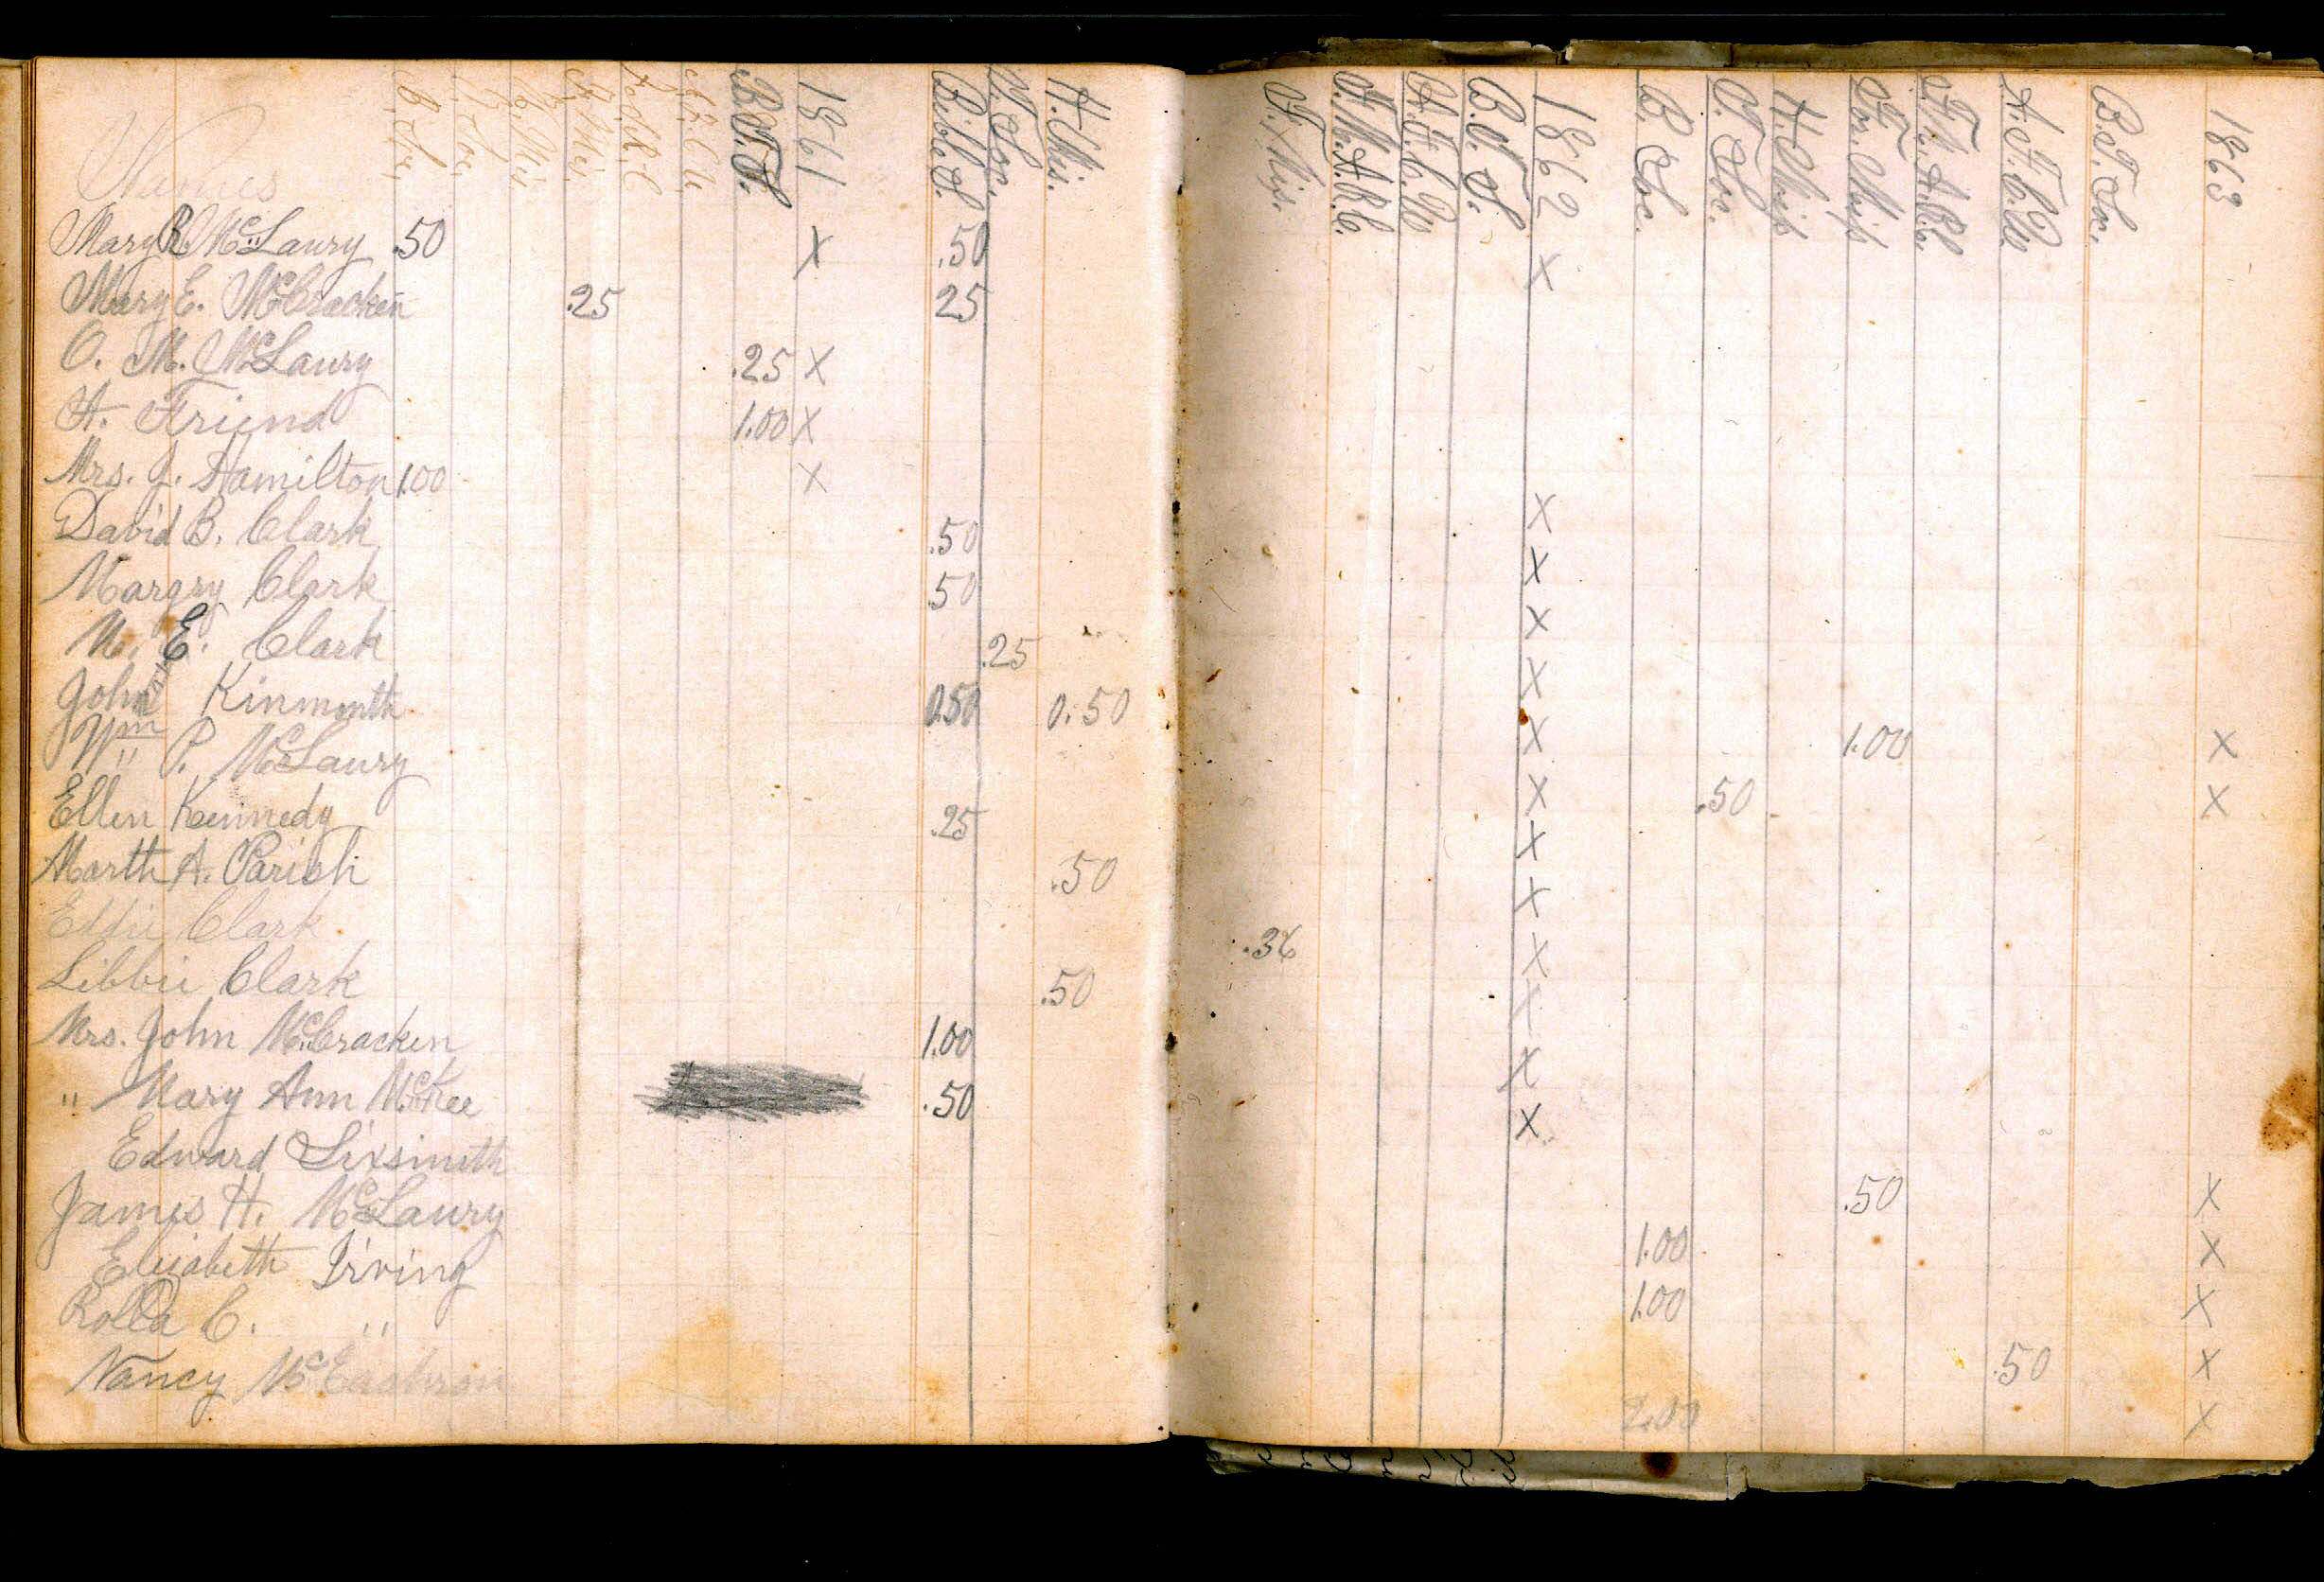 Names B. Soc. T. Soc. H. Mis. F. Mis. B.T.S. 1861 Bible S. T. Soc. H. Mis. F. Mis. F.M.A.B.C. A.F.C.U. B.T.S. 1862 B. Soc. T. Soc. H. Miss For. Miss A.F.C.U. B.T. Soc. 1863
Mary R. McLaury .50 X .50 X
Mary E. McCracken .25 25
O. M. McLaury .25 X
A. Friend 1.00 X
Mrs. J. Hamilton 1.00 X
David B. Clark .50 X
Margry Clark .50 X
M. E. Clark .25 X
John Kinmonth 0.50 0.50 X
Wm P. McLaury X 1.00 X
Ellen Kennedy .25 X .50 X
Marth A. Parish .50 X
Eddie Clark .36 X
Libbie Clark .50 X
Mrs. John McCracken 1.00 X
" Mary Ann McKee .50 X
Edward Sixsmith X
James H. McLaury .50 X
Elizabeth Irving 1.00 X
Rolla C. " 1.00 X
Nancy .50 X
2.00 X